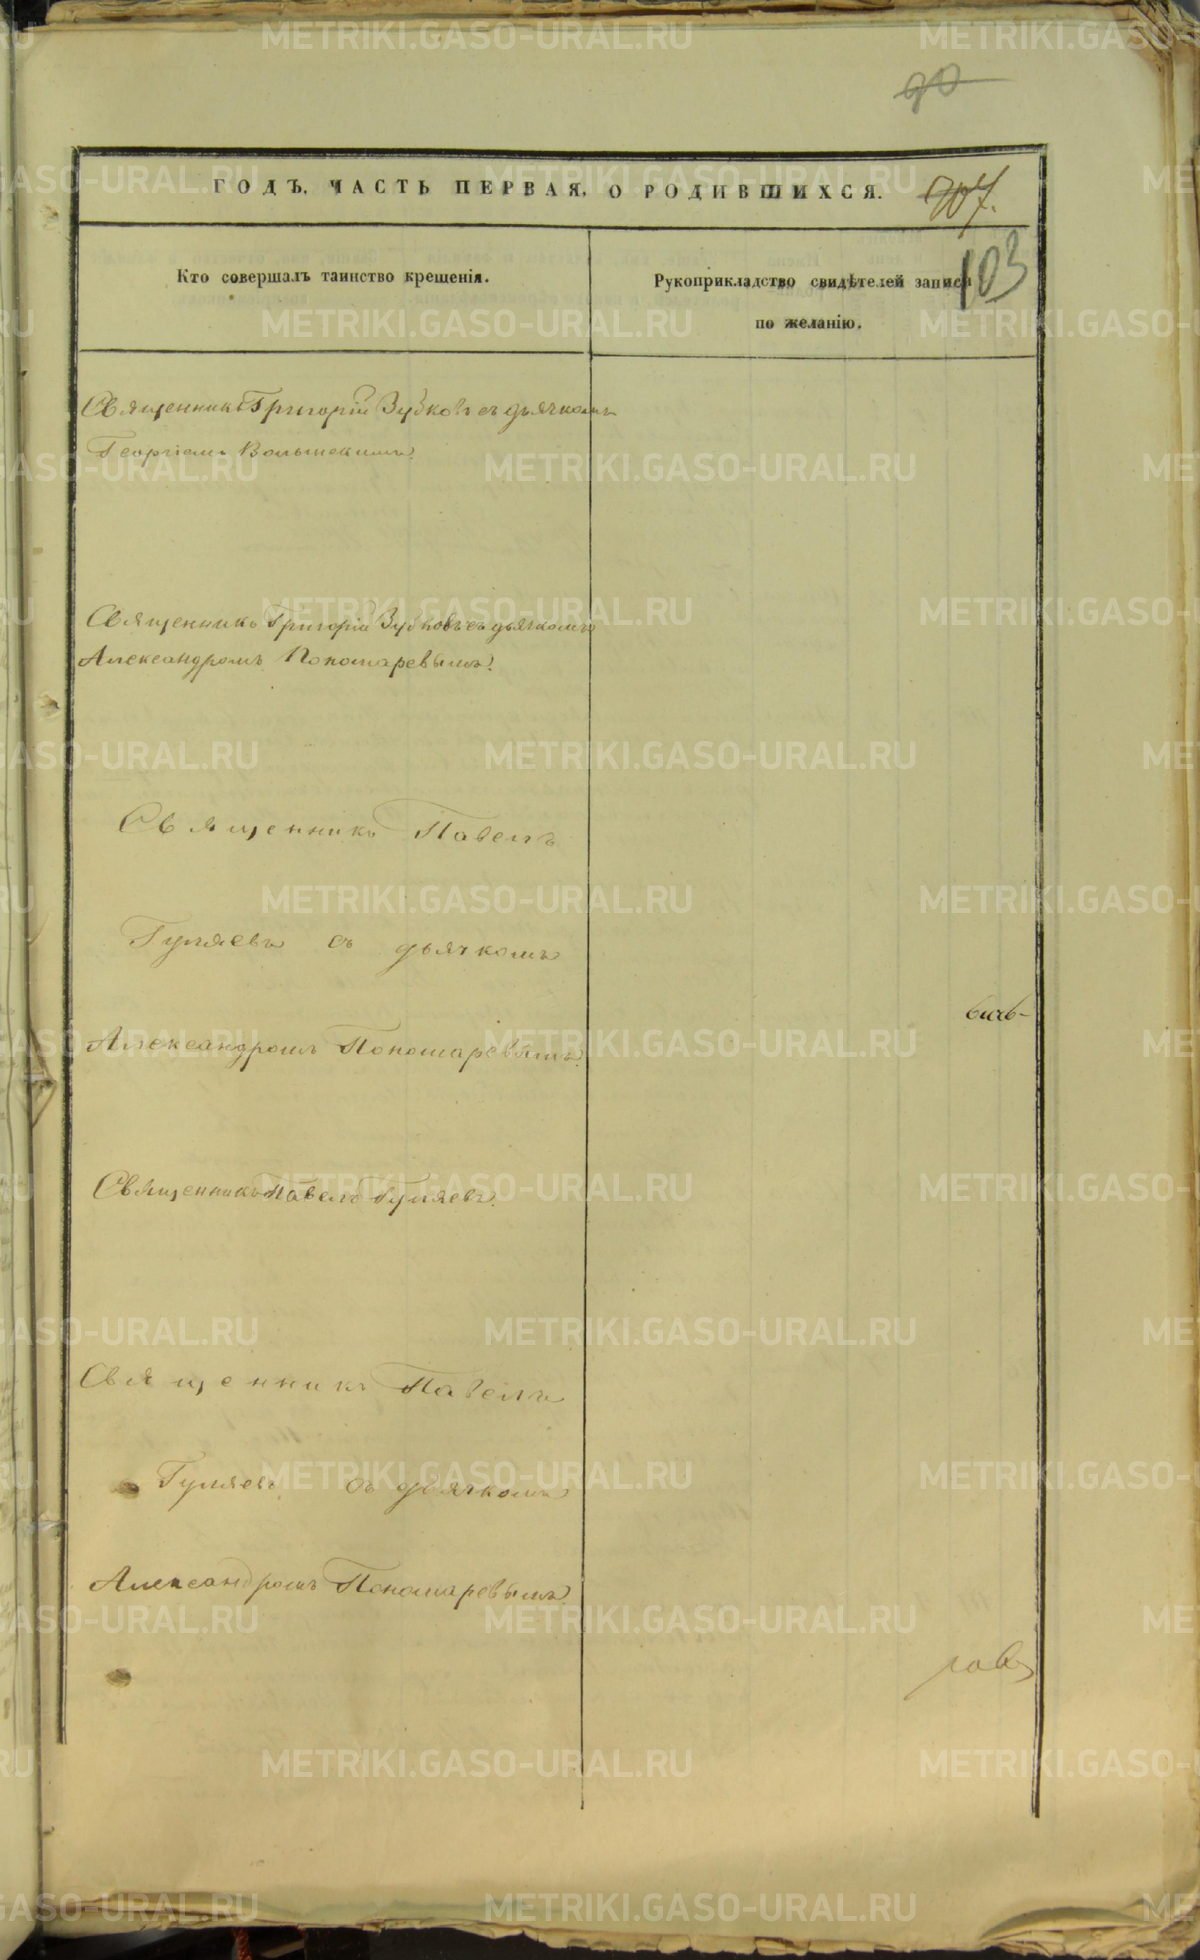 90
ГОДЪ. ЧАСТЬ ПЕРВАЯ, О РОДИВШИХСЯ.
103
Кто совершалъ таинство крещенія.
Рукоприкладство свидѣтелей записи
по желанію.
Священникъ Григорій Зубковъ съ дьячкомъ
Георгіемъ
Священникъ Григорій Зубковъ съ дьячкомъ
Александромъ Пономаревымъ.
Священникъ Павелъ
Гуляевъ съ дьячкомъ
Александромъ Пономаревымъ.
Священникъ Павелъ Гуляевъ.
Священникъ Павелъ
Гуляевъ съ дьячкомъ
Александромъ Пономаревымъ.
METRIKI.GASO-URAL.RU